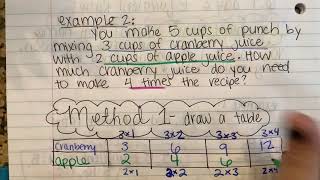 example 2:
You make 5 cups of punch by
mixing 3 cups of cranberry juice
with 2 cups of apple juice. How
much cranberry juice do you need
to make 4 times the recipe?
Method 1 - draw a table
3x1 3x2 3x3 3x4
Cranberry 3 6 9 12
apple 2 4 6
2x1 2x2 2x3 2x4